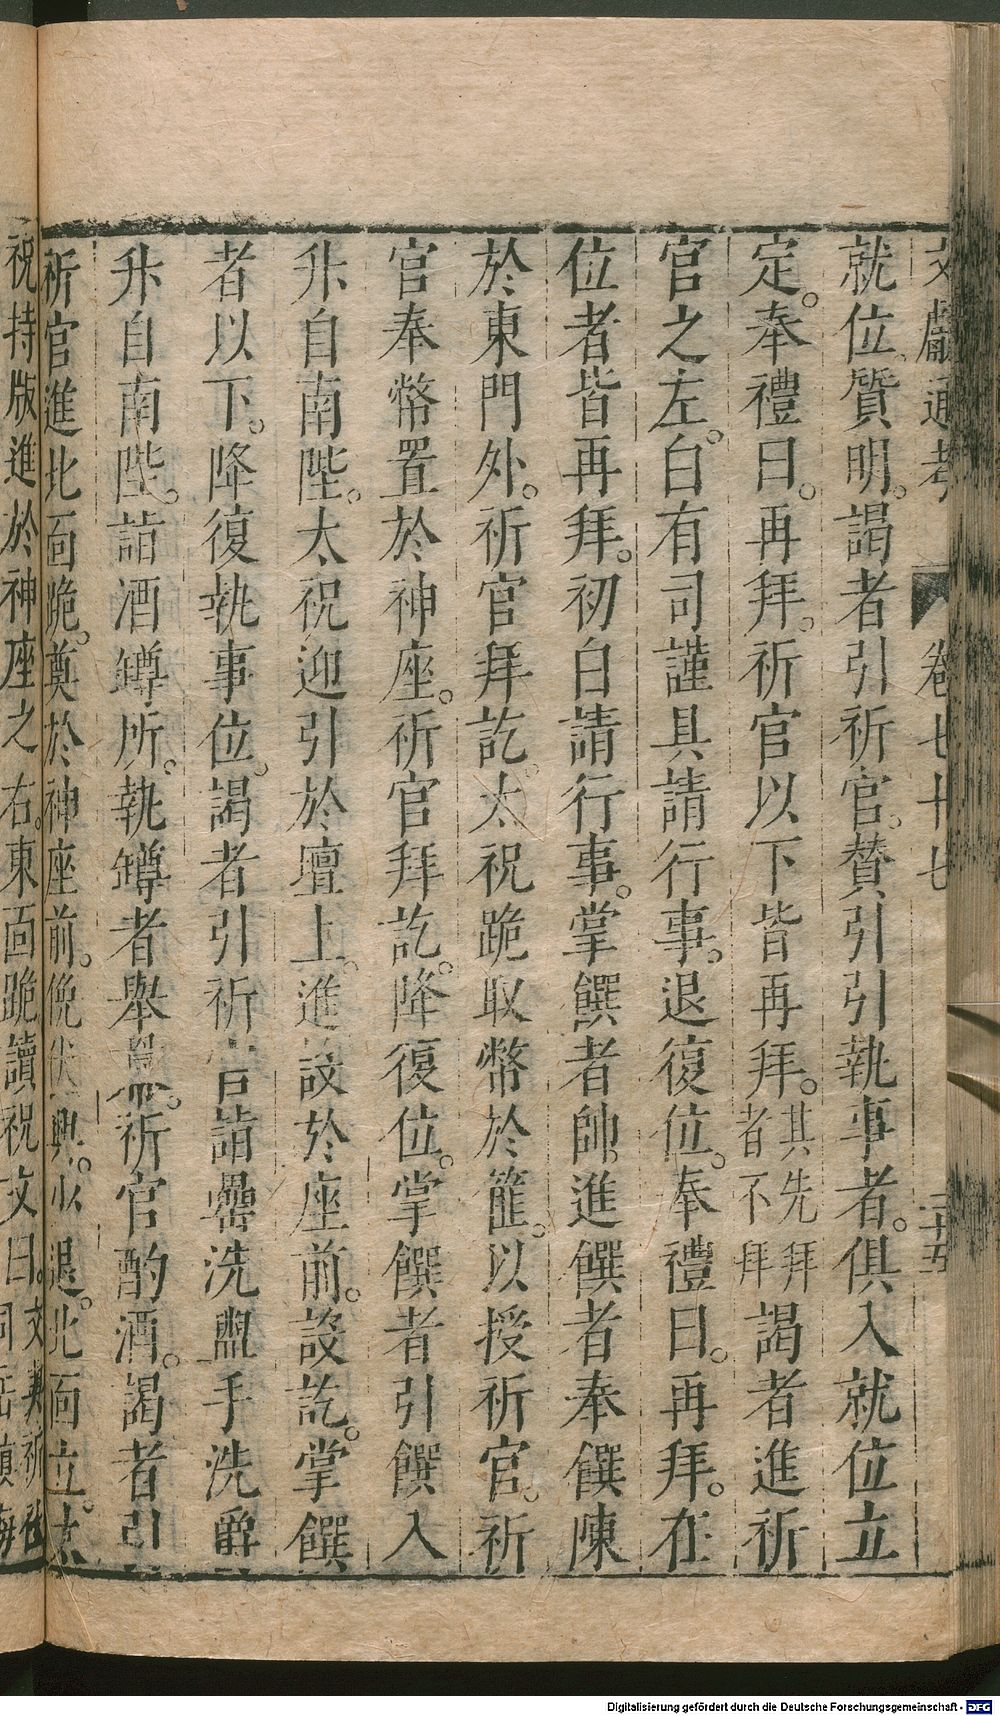 文獻通考 卷七十七 二十五
就位。質明。謁者引祈官。贊引引執事者。俱入就位立
定。奉禮曰。再拜。祈官以下皆再拜。其先拜者不拜謁者進祈
官之左。白有司謹具請行事。退復位。奉禮曰。再拜。在
位者皆再拜。初白請行事。掌饌者帥進饌者奉饌陳
於東門外。祈官拜訖。太祝跪取幣於篚。以授祈官。祈
官奉幣置於神座。祈官拜訖。降復位。掌饌者引饌入
升自南陛。太祝迎引於壇上。進設於座前。設訖。掌饌
者以下。降復執事位。謁者引祈官詣罍洗盥手洗爵
升自南陛。詣酒罇所。執罇者舉羃。祈官酌酒。謁者引
祈官進北面跪。奠於神座前。俛伏興。少退。北面立。太
祝持版進於神座之右。東面跪讀祝文曰。
Digitalisierung gefördert durch die Deutsche Forschungsgemeinschaft - DFG